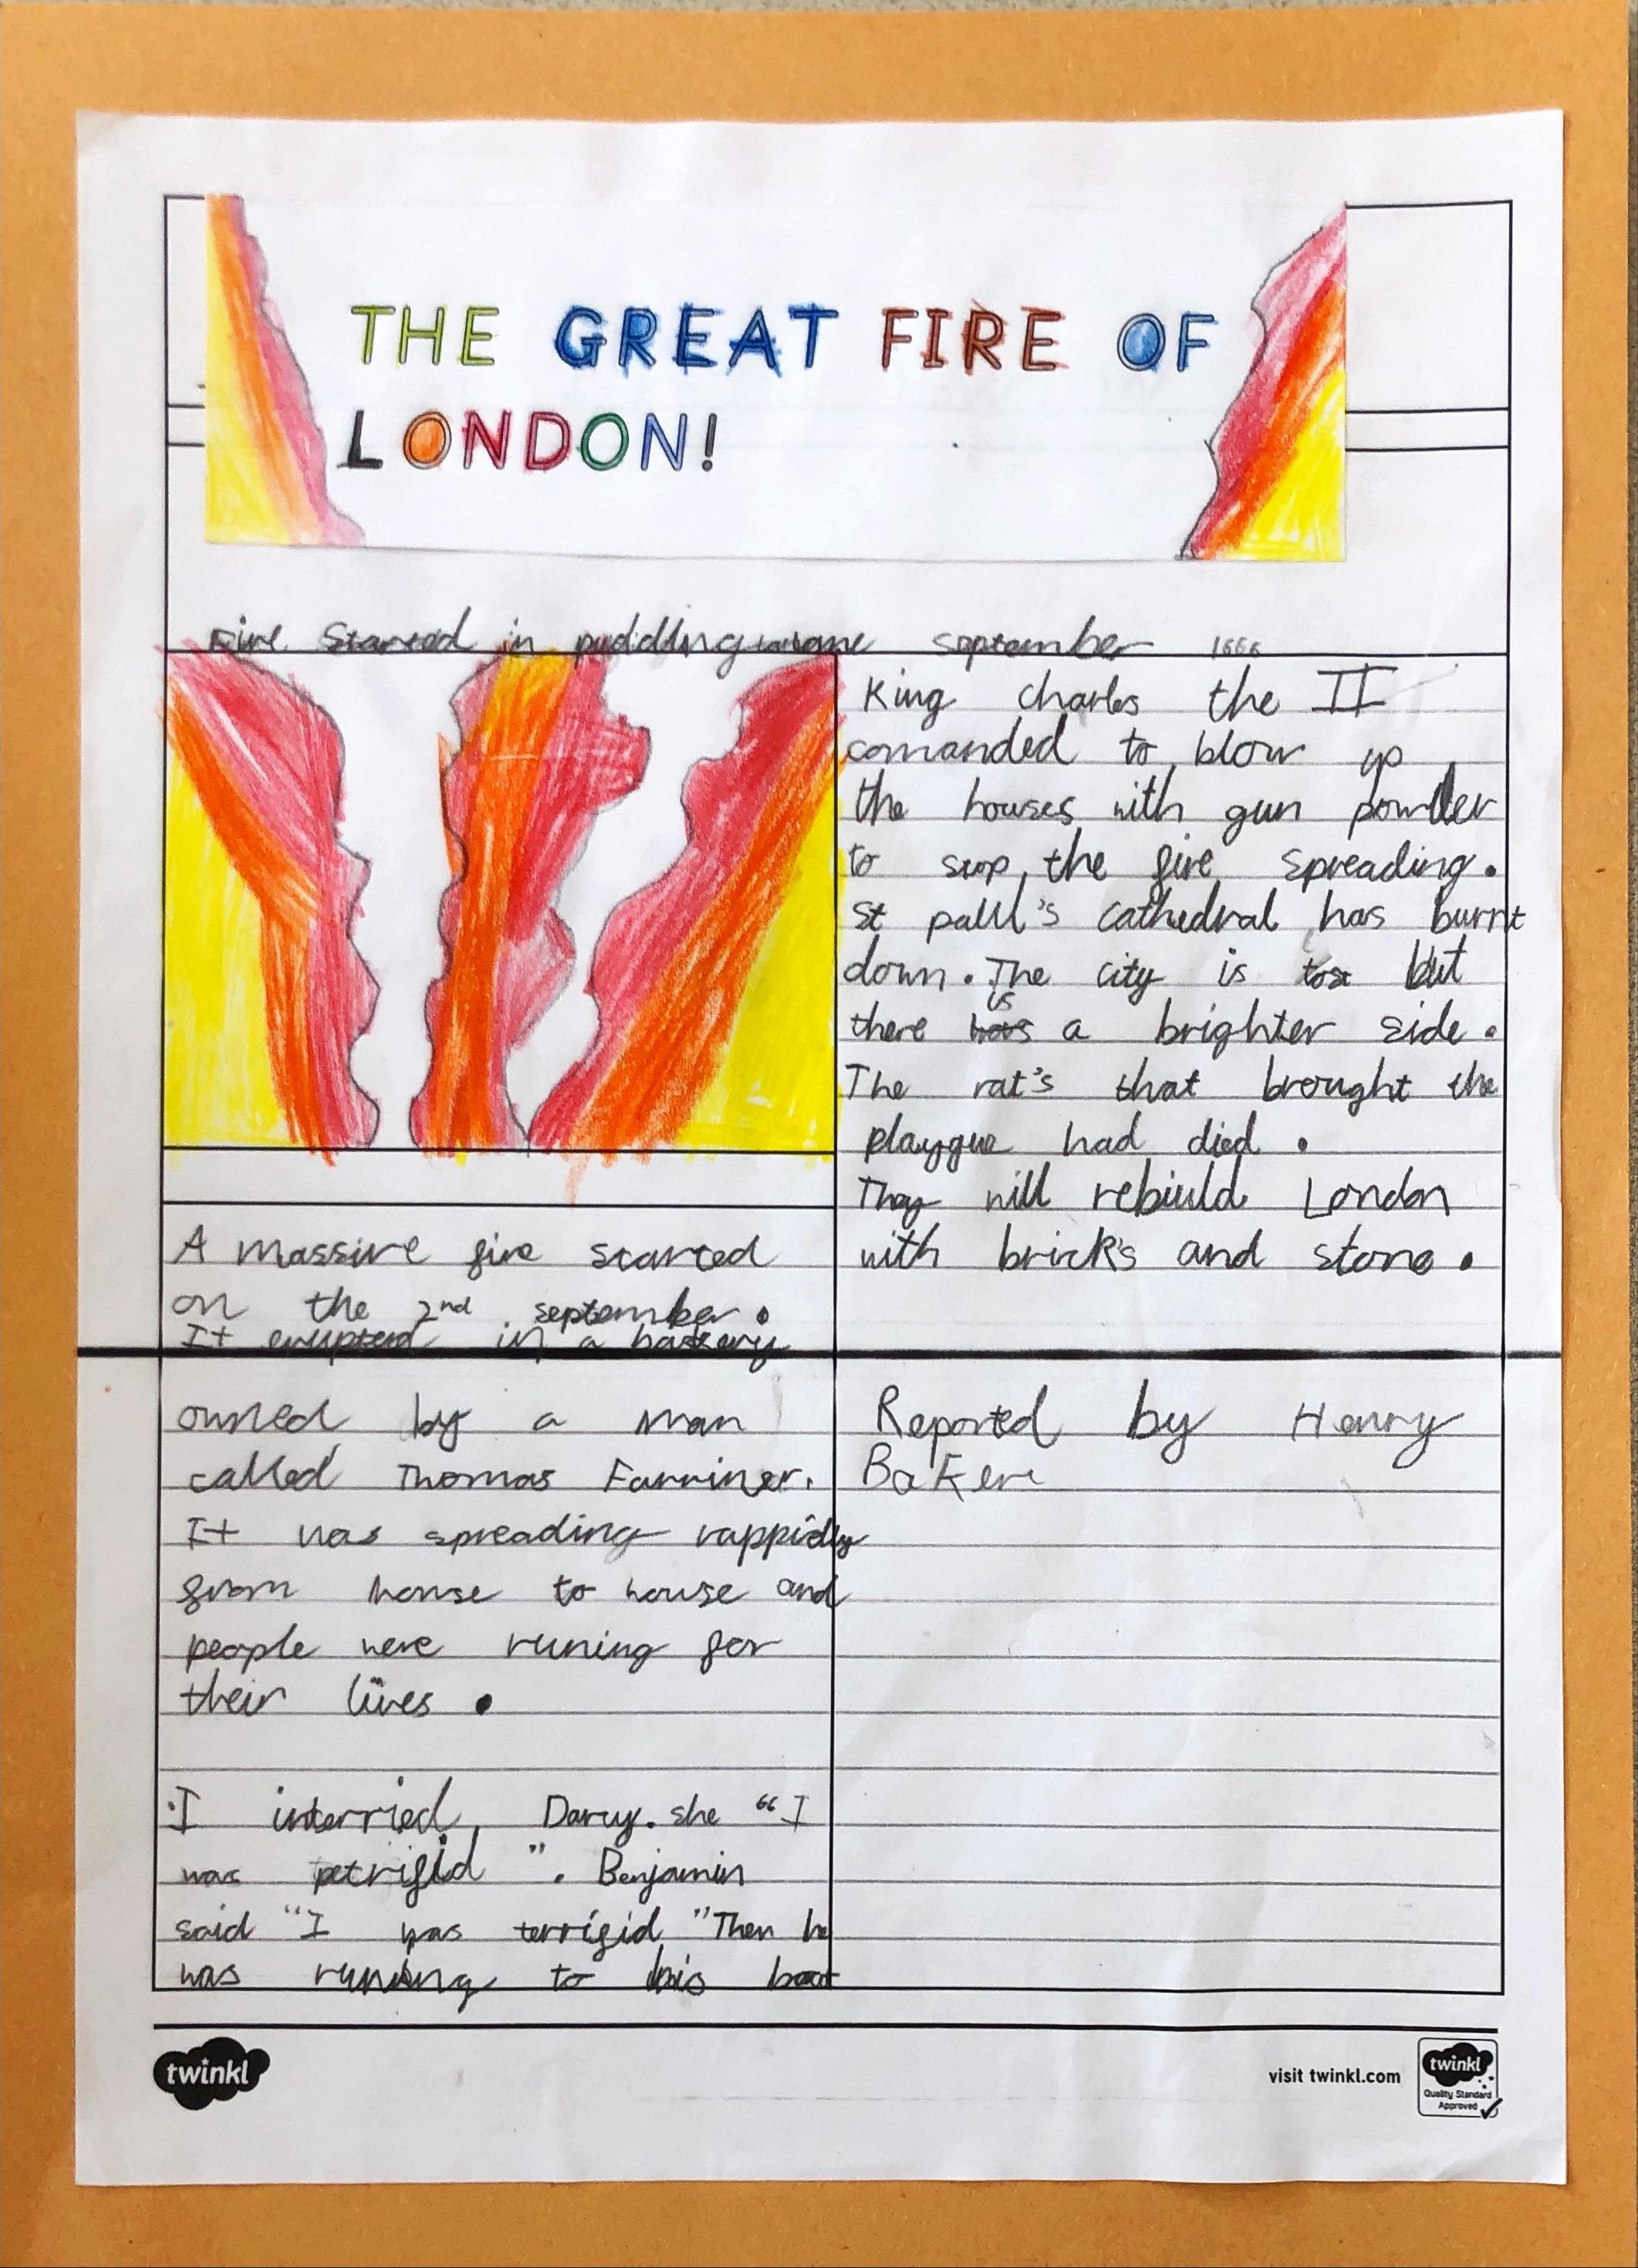 THE GREAT FIRE OF
LONDON!
Fire Started in pudding september 1666
A massive fire started
on the 2nd september.
It erupted in a bakery
owned by a man
called Thomas Farriner.
It was spreading rappidly
from house to house and
people were runing for
their lives.
I interried Darcy. she "I
was petrifid ". Benjamin
said "I was terrifid "Then he
was running to his boat
King charles the II
comanded to blow up
the houses with gun powder
to stop the fire spreading.
st paul's cathedral has burnt
down. The city is but
there is a brighter side.
The rat's that brought the
playgue had died.
They will rebiuld London
with brick's and stone.
Reported by Henry
Baker
twinkl
visit twinkl.com
twinkl
Quality Standard
Approved